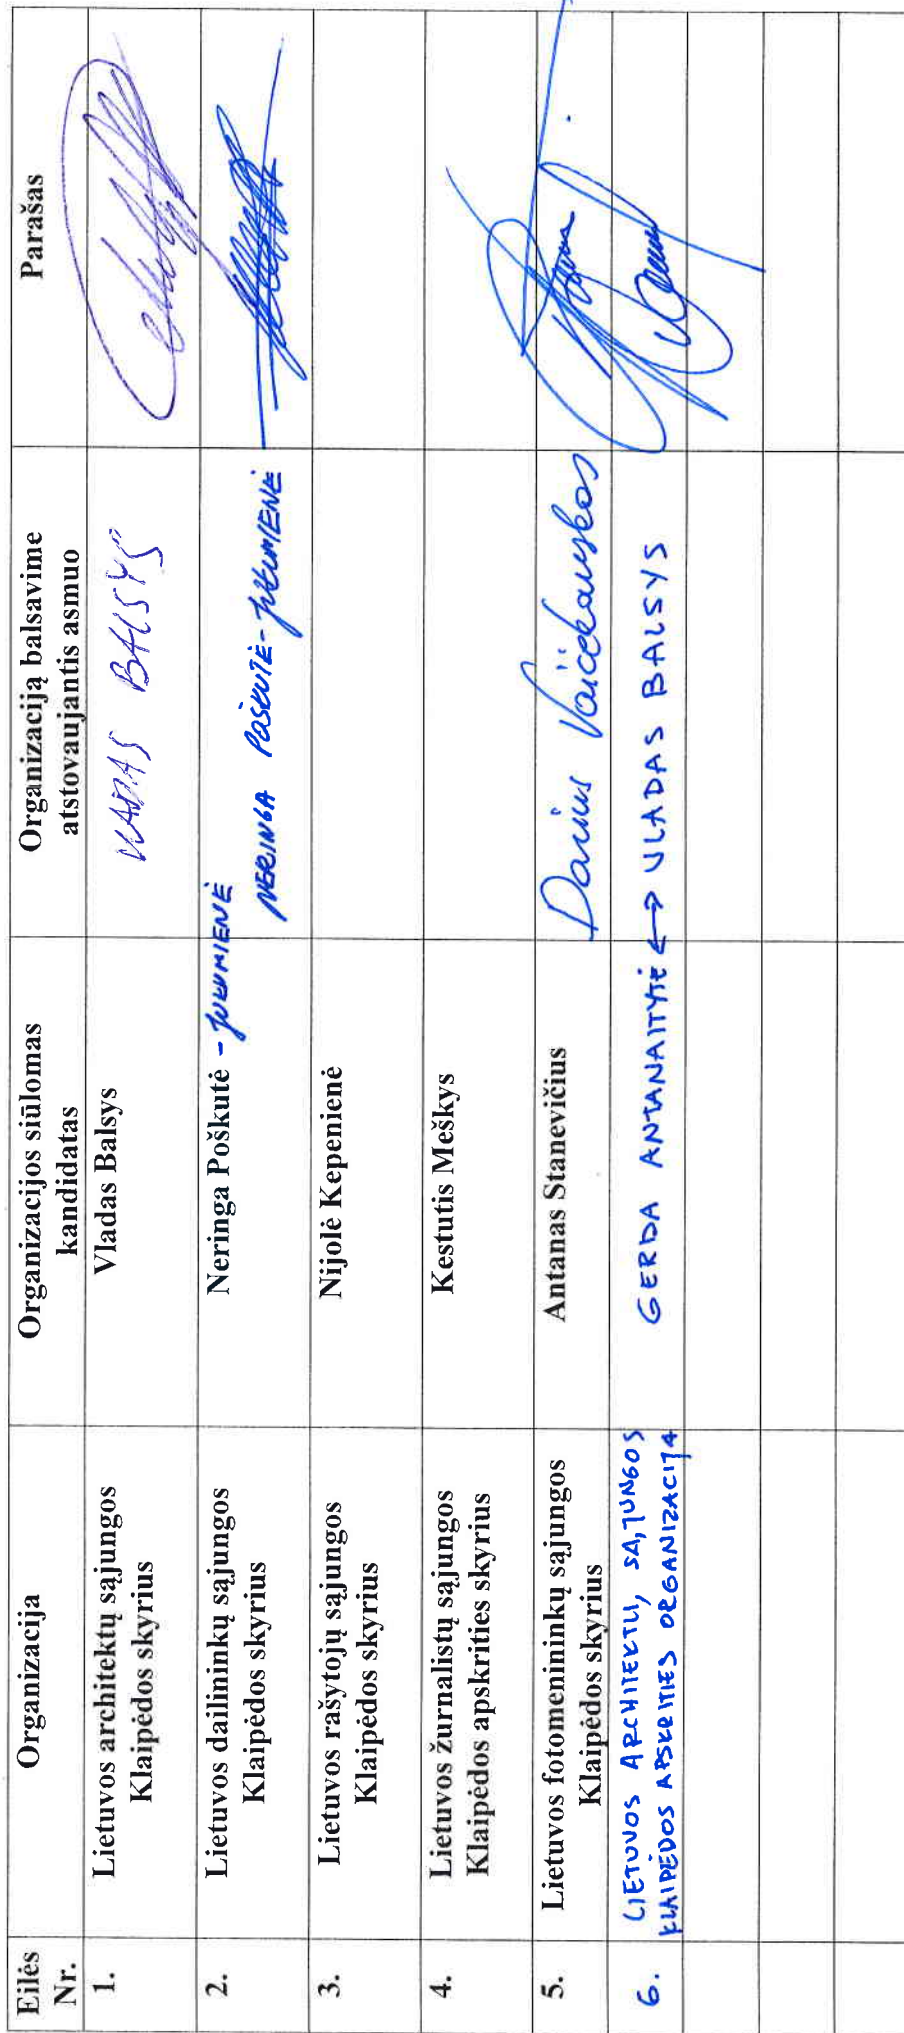 Eilės Nr.
Organizacija
Organizacijos siūlomas kandidatas
Organizaciją balsavime atstovaujantis asmuo
Parašas
1.
Lietuvos architektų sąjungos
Klaipėdos skyrius
Vladas Balsys
VLADAS BALSYS
2.
Lietuvos dailininkų sąjungos
Klaipėdos skyrius
Neringa Poškutė - JUKUMIENĖ
NERINGA POŠKUTĖ-JUKUMIENĖ
3.
Lietuvos rašytojų sąjungos
Klaipėdos skyrius
Nijolė Kepenienė
4.
Lietuvos žurnalistų sąjungos
Klaipėdos apskrities skyrius
Kestutis Meškys
5.
Lietuvos fotomenininkų sąjungos
Klaipėdos skyrius
Antanas Stanevičius
Darius Vaičekauskas
6.
LIETUVOS ARCHITEKTŲ SĄJUNGOS
KLAIPĖDOS APSKRITIES ORGANIZACIJA
GERDA ANTANAITYTĖ ↔ VLADAS BALSYS